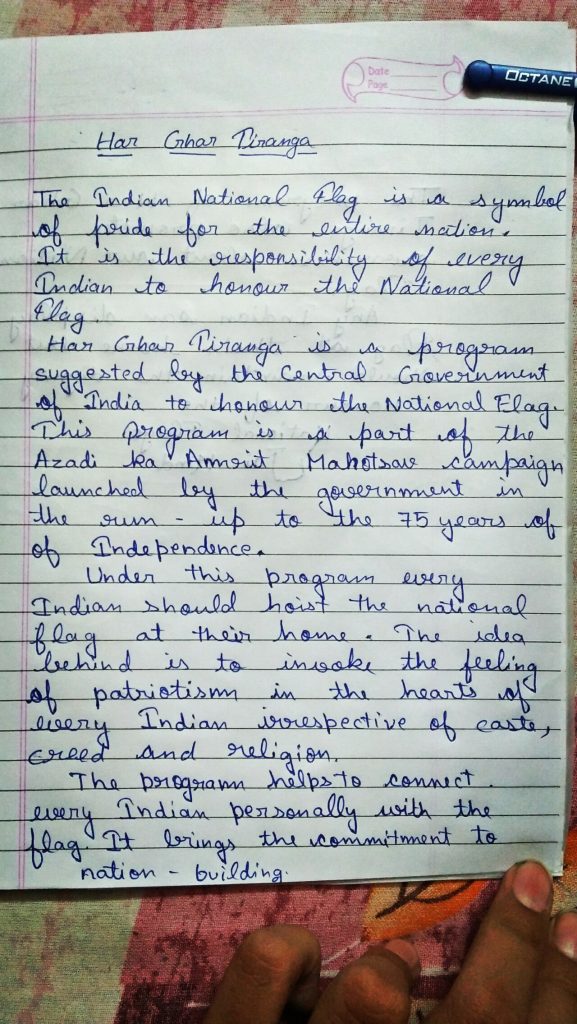 Date
Page
OCTANE
Har Ghar Tiranga
The Indian National Flag is a symbol
of pride for the entire nation.
It is the responsibility of every
Indian to honour the National
Flag.
Har Ghar Tiranga is a program
suggested by the Central Government
of India to honour the National Flag.
This program is a part of the
Azadi ka Amrit Mahotsav campaign
launched by the government in
the run - up to the 75 years of
of Independence.
Under this program every
Indian should hoist the national
flag at their home. The idea
behind is to invoke the feeling
of patriotism in the hearts of
every Indian irrespective of caste,
creed and religion.
The program helps to connect
every Indian personally with the
flag. It brings the commitment to
nation - building.